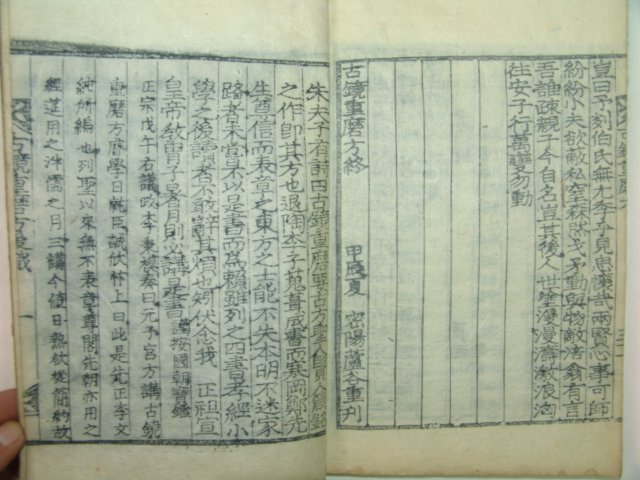 豈曰予刻伯氏無尤季亦見思懷哉兩賢心事可師
紛紛小夫欲敵私窒森然戈矛動與物敵浩翁有言
吾誰疎親子今自名豈其後人世塗漫漫濤激浪洶
往安子行萬變勿動
古鏡重磨方終
甲辰夏 密陽蘆谷重刊
朱夫子有詩曰古鏡重磨要古方聖賢箴銘
之作卽其方也退陶李子蒐葺成書而寒岡鄭先
生尊信而表章之東方之士能不失本明不迷家
路者未嘗不以是書而爲賴雖列之四書孝經小
學之後讀者不敢辭其僭也矧伏念我 正祖宣
皇帝敎冑子暑月則必講是書謹按國朝寶鑑
正宗戊午右議政李秉模奏曰元子宮方講古鏡
重磨方磨學日就臣誠伏忭 上曰此是先正李文
純所編也列聖以來無不表章尊閣先朝亦用之
經筵用之冲儒之月三講今値日熱欲從簡約故
古鏡重磨方後識 一